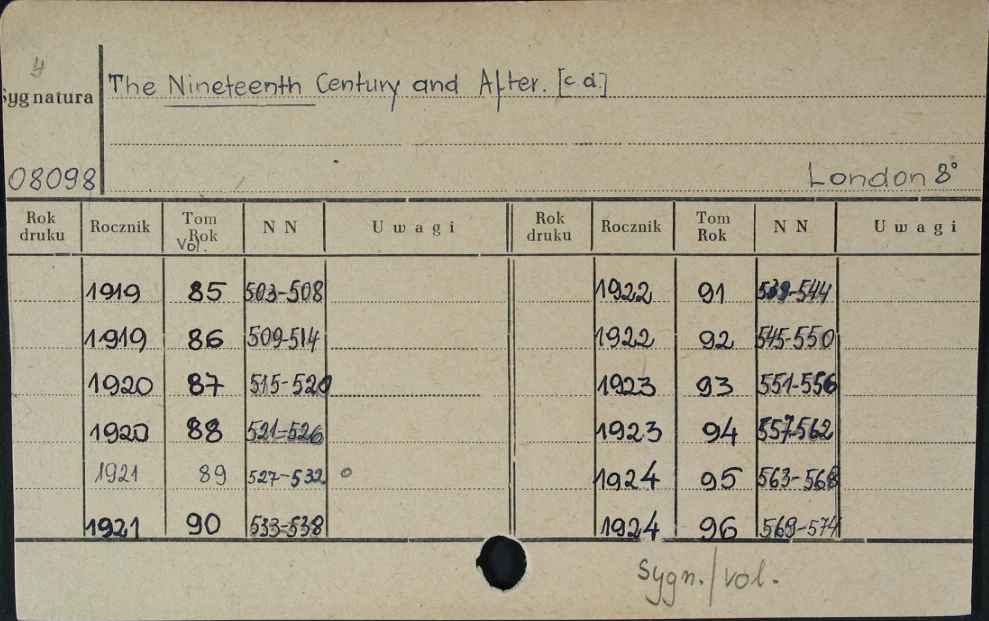 4
Sygnatura
The Nineteenth Century and After. [c.d.]
08098
London 8°
Rok druku Rocznik Tom Rok Vol. N N Uwagi Rok druku Rocznik Tom Rok N N Uwagi
1919 85 503-508 1922 91 539-544
1919 86 509-514 1922 92 545-550
1920 87 515-520 1923 93 551-556
1920 88 521-526 1923 94 557-562
1921 89 527-532 o 1924 95 563-568
1921 90 533-538 1924 96 569-574
Sygn./vol.